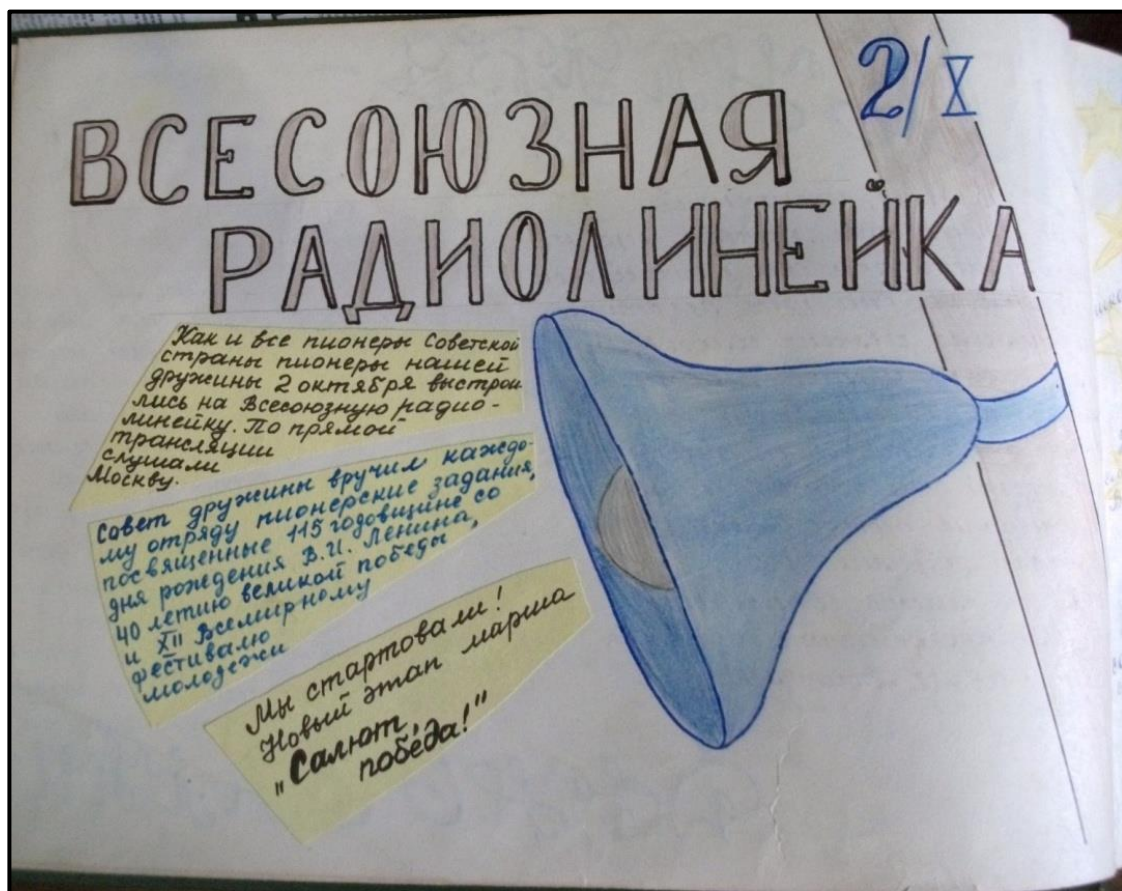 2/X
ВСЕСОЮЗНАЯ
РАДИОЛИНЕЙКА
Как и все пионеры Советской
страны пионеры нашей
дружины 2 октября выстрои
лись на Всесоюзную радио-
линейку. По прямой
трансляции
слушали
Москву.
Совет дружины вручил каждо-
му отряду пионерские задания,
посвященные 115 годовщине со
дня рождения В.И. Ленина,
40 летию великой победы
и XII Всемирному
фестивалю
молодежи
Мы стартовали!
Новый этап марша
"Салют,
победа!"